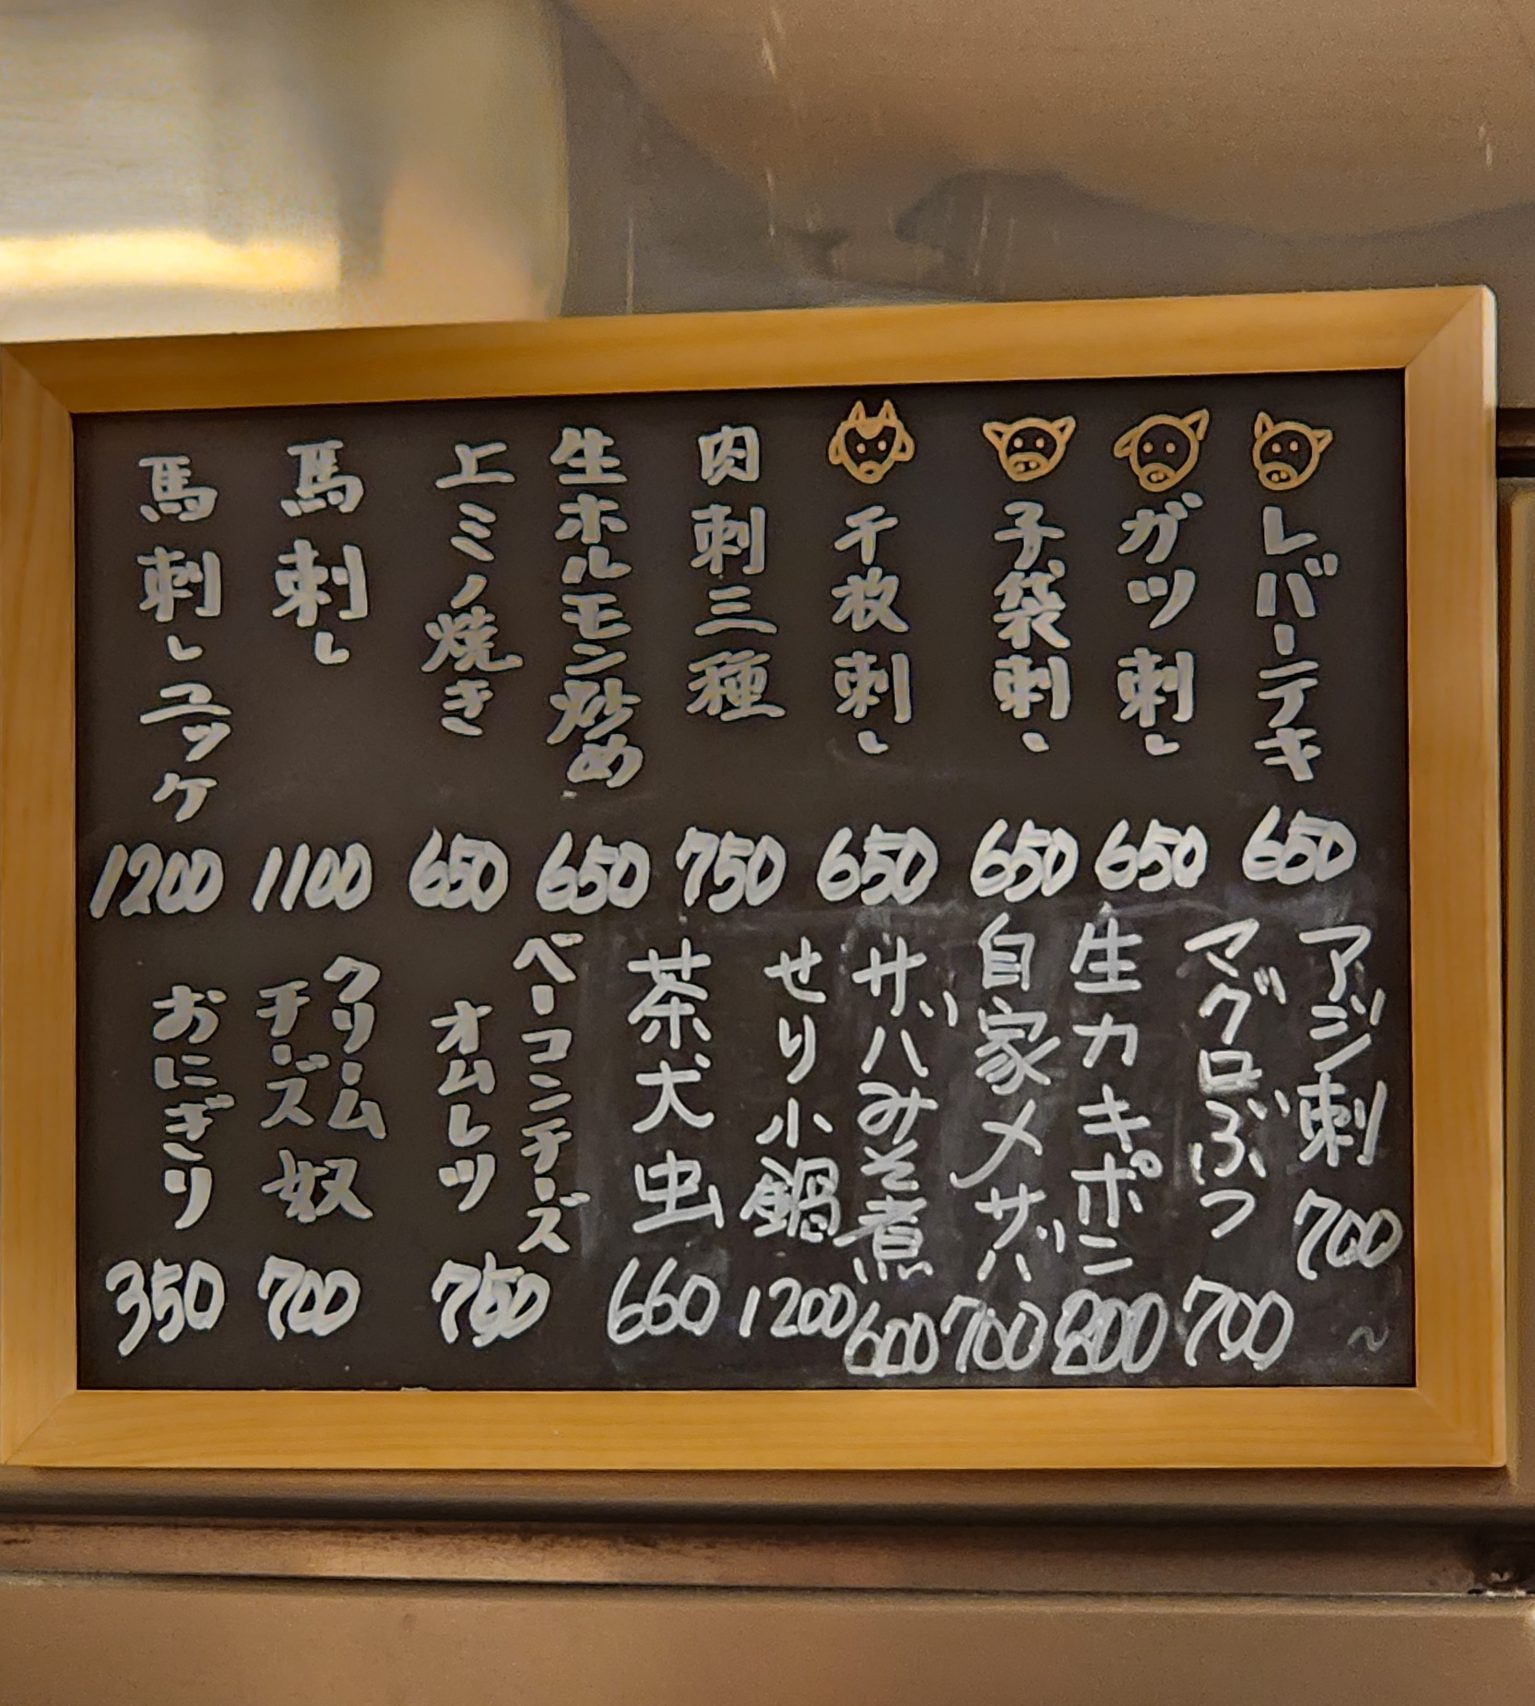 レバーテキ
650
ガツ刺し
650
子袋刺し
650
千枚刺し
650
肉刺三種
750
生ホルモン炒め
650
上ミノ焼き
650
馬刺し
1100
馬刺しユッケ
1200
アジ刺
700
マグロぶつ
700
生カキポン
800
自家〆サバ
700
サバみそ煮
600
せり小鍋
1200
茶犬虫
660
ベーコンチーズ
オムレツ
750
クリーム
チーズ奴
700
おにぎり
350